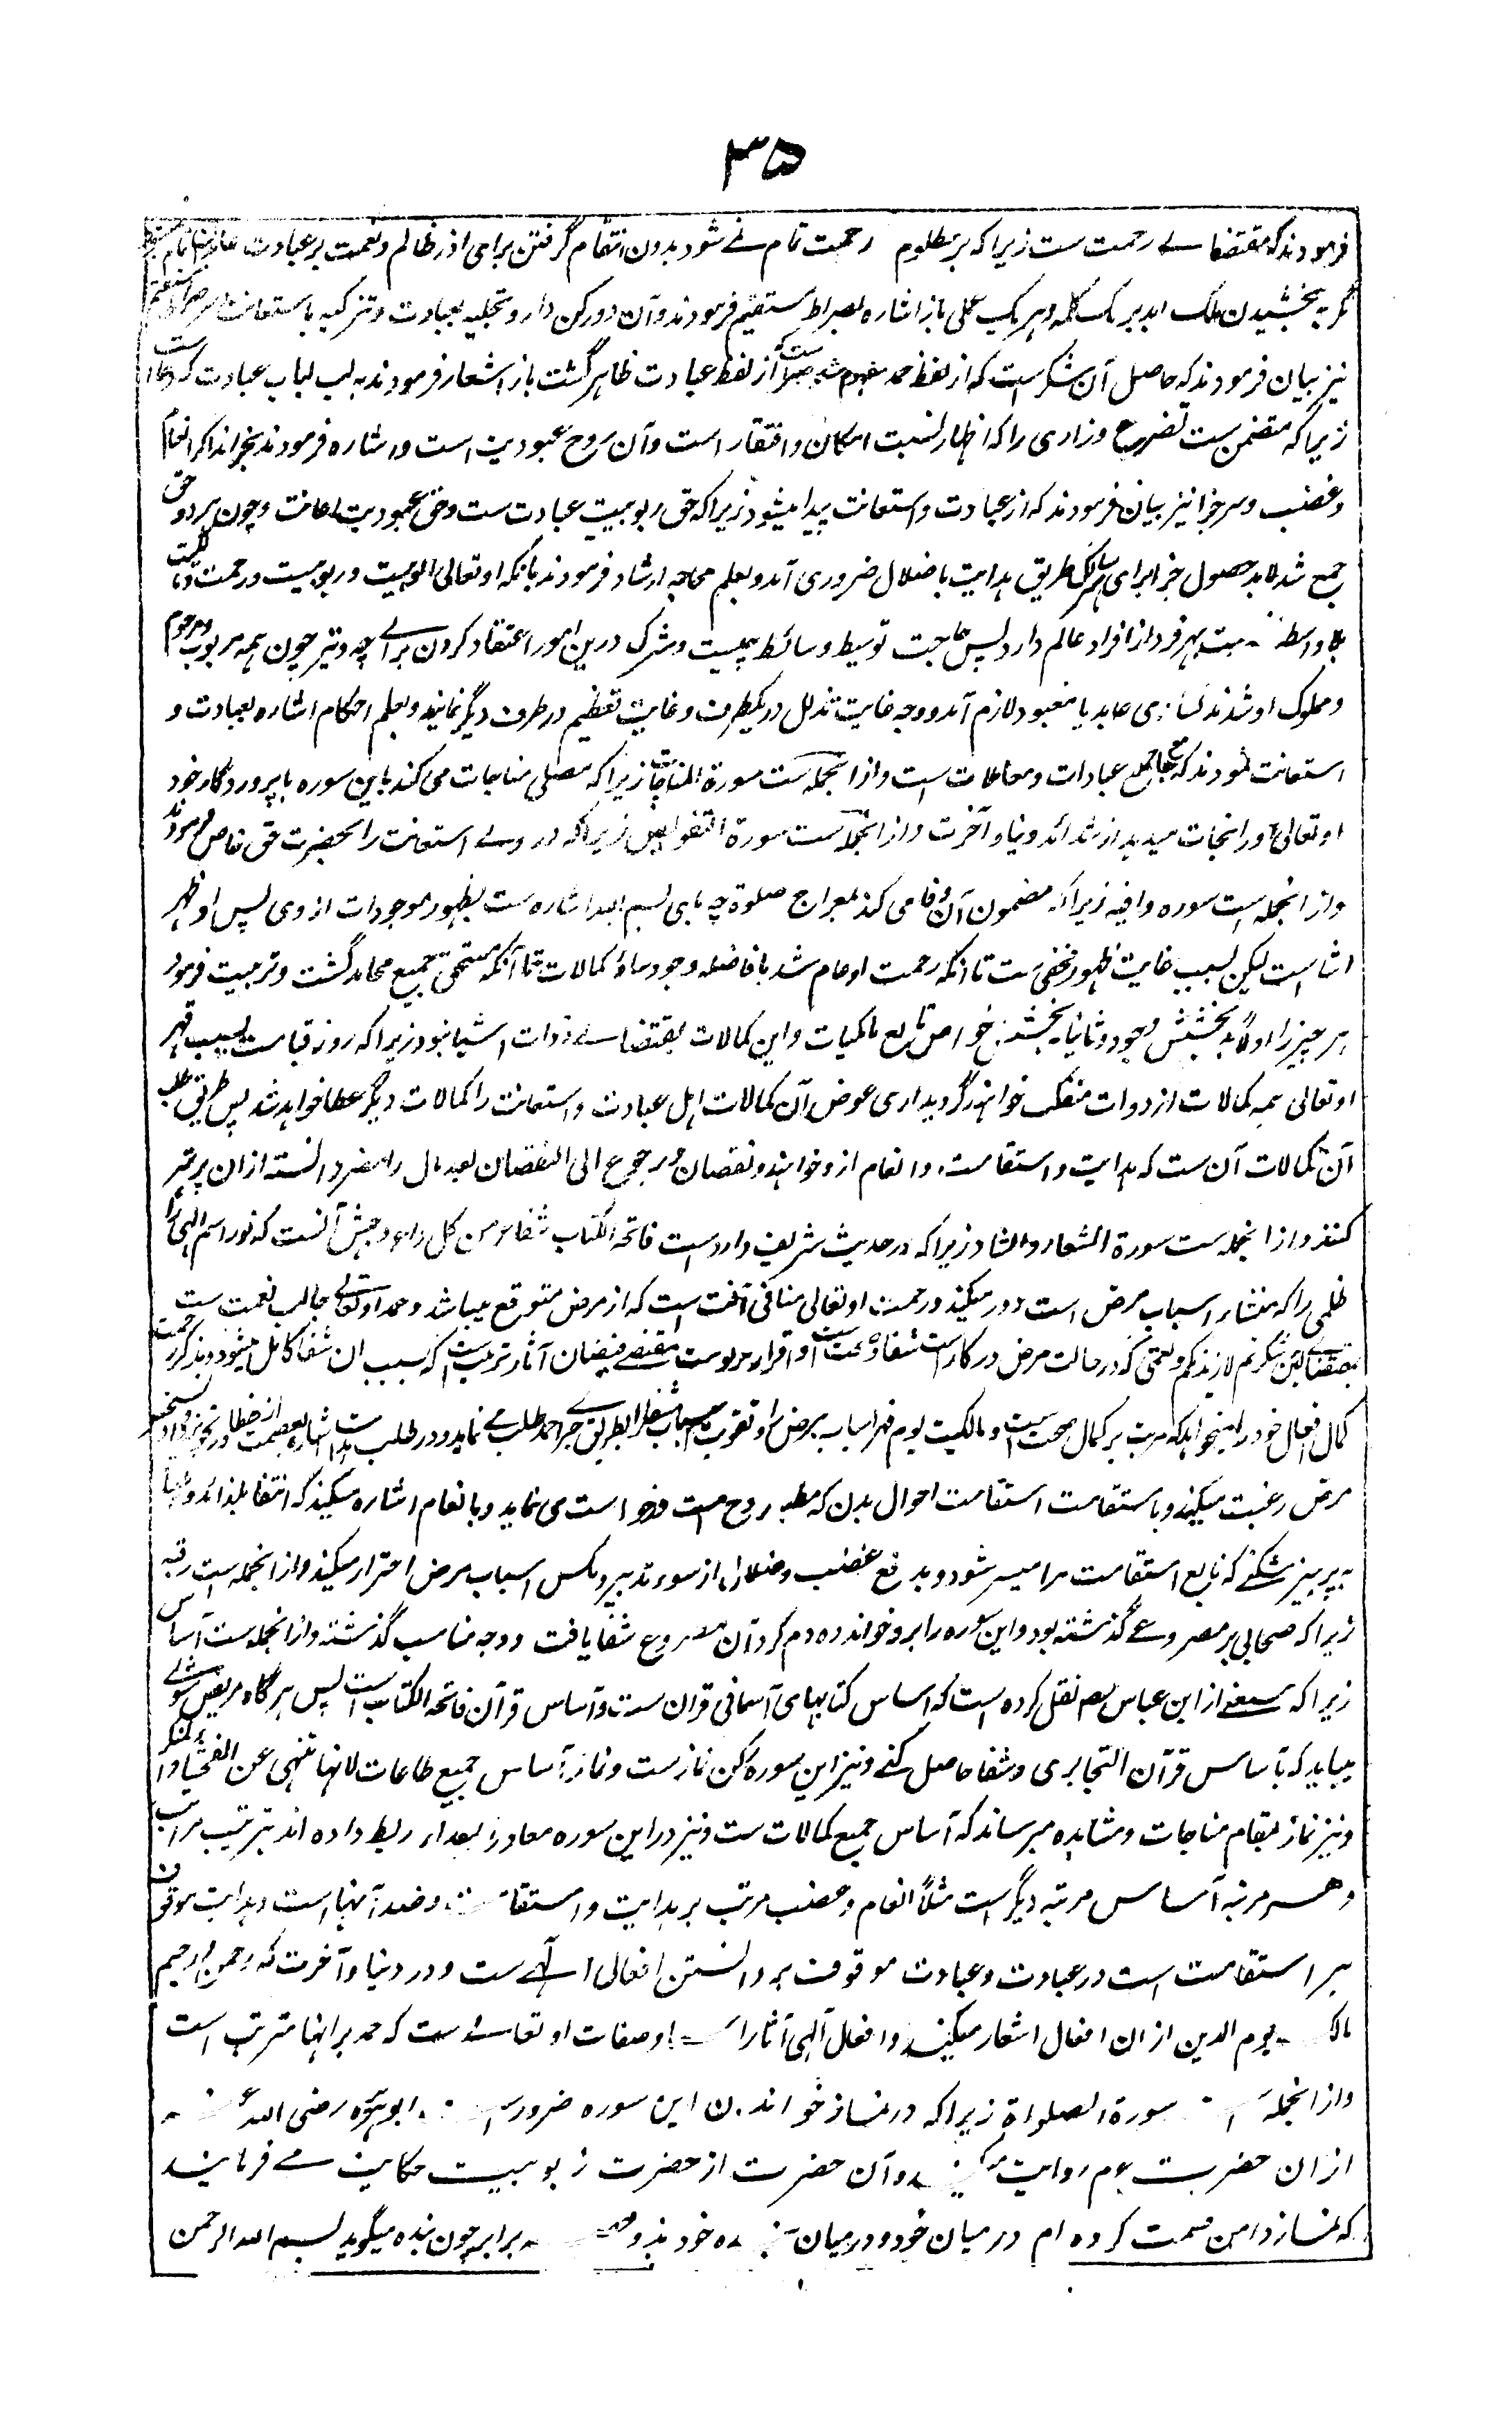 ۳۵
فرمودند که مقتضاے رحمت ست زیرا که بر مظلوم رحمت تام نے شود بدون انتقام گرفتن برای او از ظالم و نعمت بر عبادت
مگر به بخشیدن ملک ابد بر یک کلمه و بر یک عملی باز اشاره بصراط مستقیم فرمودند و آن دو رکن دارد تجلیه بعبادت و تزکیه باستعانت
نیز بیان فرمودند که حاصل آن شکر ست که از لفظ حمد مفهوم شد از لفظ عبادت ظاهر گشت باز اشعار فرمودند به لب لباب عبادت که دعا است
زیرا که متضمن ست تضرع و زاری را که اظهار نسبت امکان و افتقار است و آن روح عبودیت است و اشاره فرمودند بجزا بذکر انعام
و غضب و سر جزا نیز بیان فرمودند که از عبادت و استعانت پیدا میشود زیرا که حق ربوبیت عبادت ست و حق عبودیت اعانت و چون هر دو حق
جمع شد لابد حصول جزا برای سالک طریق هدایت یا ضلال ضروری آمد و بعلم محاجه ارشاد فرمودند بانکه او تعالی الوهیت و ربوبیت و رحمت و مالکیت
بلا واسطه بهر فرد از افراد عالم دارد پس حاجت توسیط وسائط چیست و شرک درین امور اعتقاد کردن براے چه و نیز چون همه مربوب و مرحوم
و مملوک او شدند تساوی عابد با معبود لازم آمد و وجه غایت تذلل در یکطرف و غایت تعظیم در طرف دیگر نماند و بعلم احکام اشاره بعبادت و
استعانت نمودند که جمیع عبادات و معاملات است و از انجمله ست سورة المناجات زیرا که مصلی مناجات می کند باین سوره با پروردگار خود
او تعالی او را نجات میدهد از شدائد دنیا و آخرت و از انجمله ست سورة التفویض زیرا که در وے استعانت را بحضرت حق خاص فرمودند
و از انجمله است سوره وافیه زیرا که مضمون آن وفا می کند بمعراج صلوة چه بای بسم الله اشاره ست بظهور موجودات از وی پس او ظاهر
است لیکن بسبب غایت ظهور مخفی ست تا انکه رحمت او عام شد بافاضه وجود و سائر کمالات تا آنکه مستحق جمیع محامد گشت و تربیت فرمود
هر چیز را اولا به بخشش وجود و ثانیا بخشش خواص تابع ماهیات و این کمالات بمقتضاے ذوات اشیا نبود زیرا که روز قیامت بسبب قهر
او تعالی همه کمالات از ذوات منفک خواهند گردید آری عوض آن کمالات اهل عبادت و استعانت را کمالات دیگر عطا خواهد شد پس طریق طلب
آن کمالات آن ست که هدایت و استقامت و انعام از و خواهند و نقصان و رجوع الی النقصان بعد کمال را مضر دانسته از ان پرهیز
کنند و از انجمله ست سورة الشفاء و الشافیه زیرا که در حدیث شریف وارد ست فاتحة الکتاب شفاء من کل داء و وجهش آنست که نور اسم الهی
ظلمی را که منشاء اسباب مرض است دور میکند و رحمت او تعالی منافی آفت است که از مرض متوقع میباشد و حمد او تعالے جالب نعمت ست
بمقتضاے لئن شکرتم لازیدنکم و نعمتی که در حالت مرض در کار است شفا و صحت است و اقرار بربوبیت مقتضے فیضان آثار تربیت است که بسبب ان شفا کامل میشود و بذکر رحمت
کمال افعال خود را میخواهد که مرتب بر کمال صحت است و مالکیت یوم
مرض رغبت میکند و باستقامت استقامت احوال بدن که مطیه روح ست درخواست می نماید و بانعام اشاره میکند که انتفا بلذائذ
به پرهیز شکنے که تابع استقامت مرا میسر شود و بدفع غضب و ضلال از سوء تدبیر و نکس اسباب مرض احتراز میکند و از انجمله است رقیه
زیرا که صحابی بر مصروعے گذشته بود و این سوره را برو خوانده دم کرد آن مصروع شفا یافت و وجه مناسب گذشته و از انجمله ست اساس
زیرا که شعبے از ابن عباس رضہ نقل کرده است که اساس کتابهای آسمانی قرآن ست و اساس قرآن فاتحة الکتاب است پس هر گاه مریض شوے
بیباید که باساس قرآن التجا بری و شفا حاصل کنے و نیز این سوره رکن نماز ست و نماز اساس جمیع طاعات لانها تنهی عن الفحشاء و المنکر
و نیز نماز بمقام مناجات و مشاهده میرساند که اساس جمیع کمالات ست و نیز در این سوره معاد را بمبدا ربط داده اند بترتیب مراتب
و هر مرتبه اساس مرتبه دیگر ست مثلا انعام و غضب مرتب بر هدایت و استقامت و ضد آنها است و هدایت موقوف
بر استقامت است در عبادت و عبادت موقوف بر دانستن افعال الٰهی ست و در دنیا و آخرت که رحمن و رحیم
مالک یوم الدین از ان افعال اشعار میکند و افعال آلهی آثار اوصاف او تعالے ست که حمد بر انها مترتب است
و از انجمله است سورة الصلواة زیرا که در نماز خواندن این سوره ضرور است ابو هریره رضی الله عنه
از ان حضرت صلعم روایت میکند و آن حضرت از حضرت ربوبیت حکایت مے فرمایند
که نماز را من قسمت کرده ام در میان خود و درمیان بنده خود بدو حصه برابر چون بنده میگوید بسم الله الرحمن